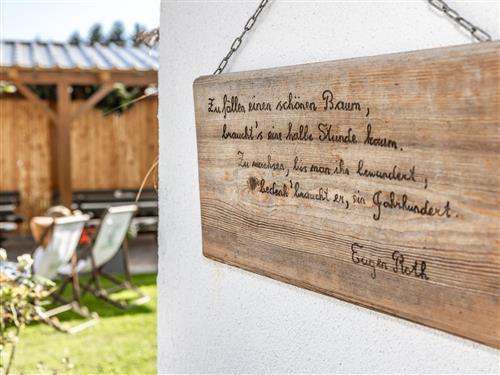 Zu fällen einen schönen Baum,
braucht's eine halbe Stunde kaum.
Zu wachsen, bis man ihn bewundert,
bedenk' braucht er, ein Jahrhundert.
Eugen Roth